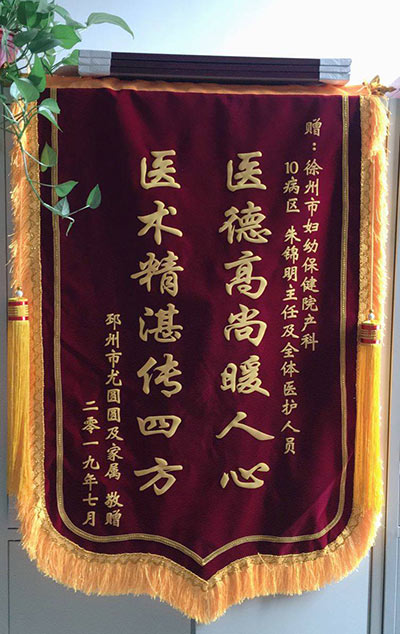 赠：徐州市妇幼保健院产科
10病区 朱锦明主任及全体医护人员
医德高尚暖人心
医术精湛传四方
邳州市尤圆圆及家属 敬赠
二零一九年七月